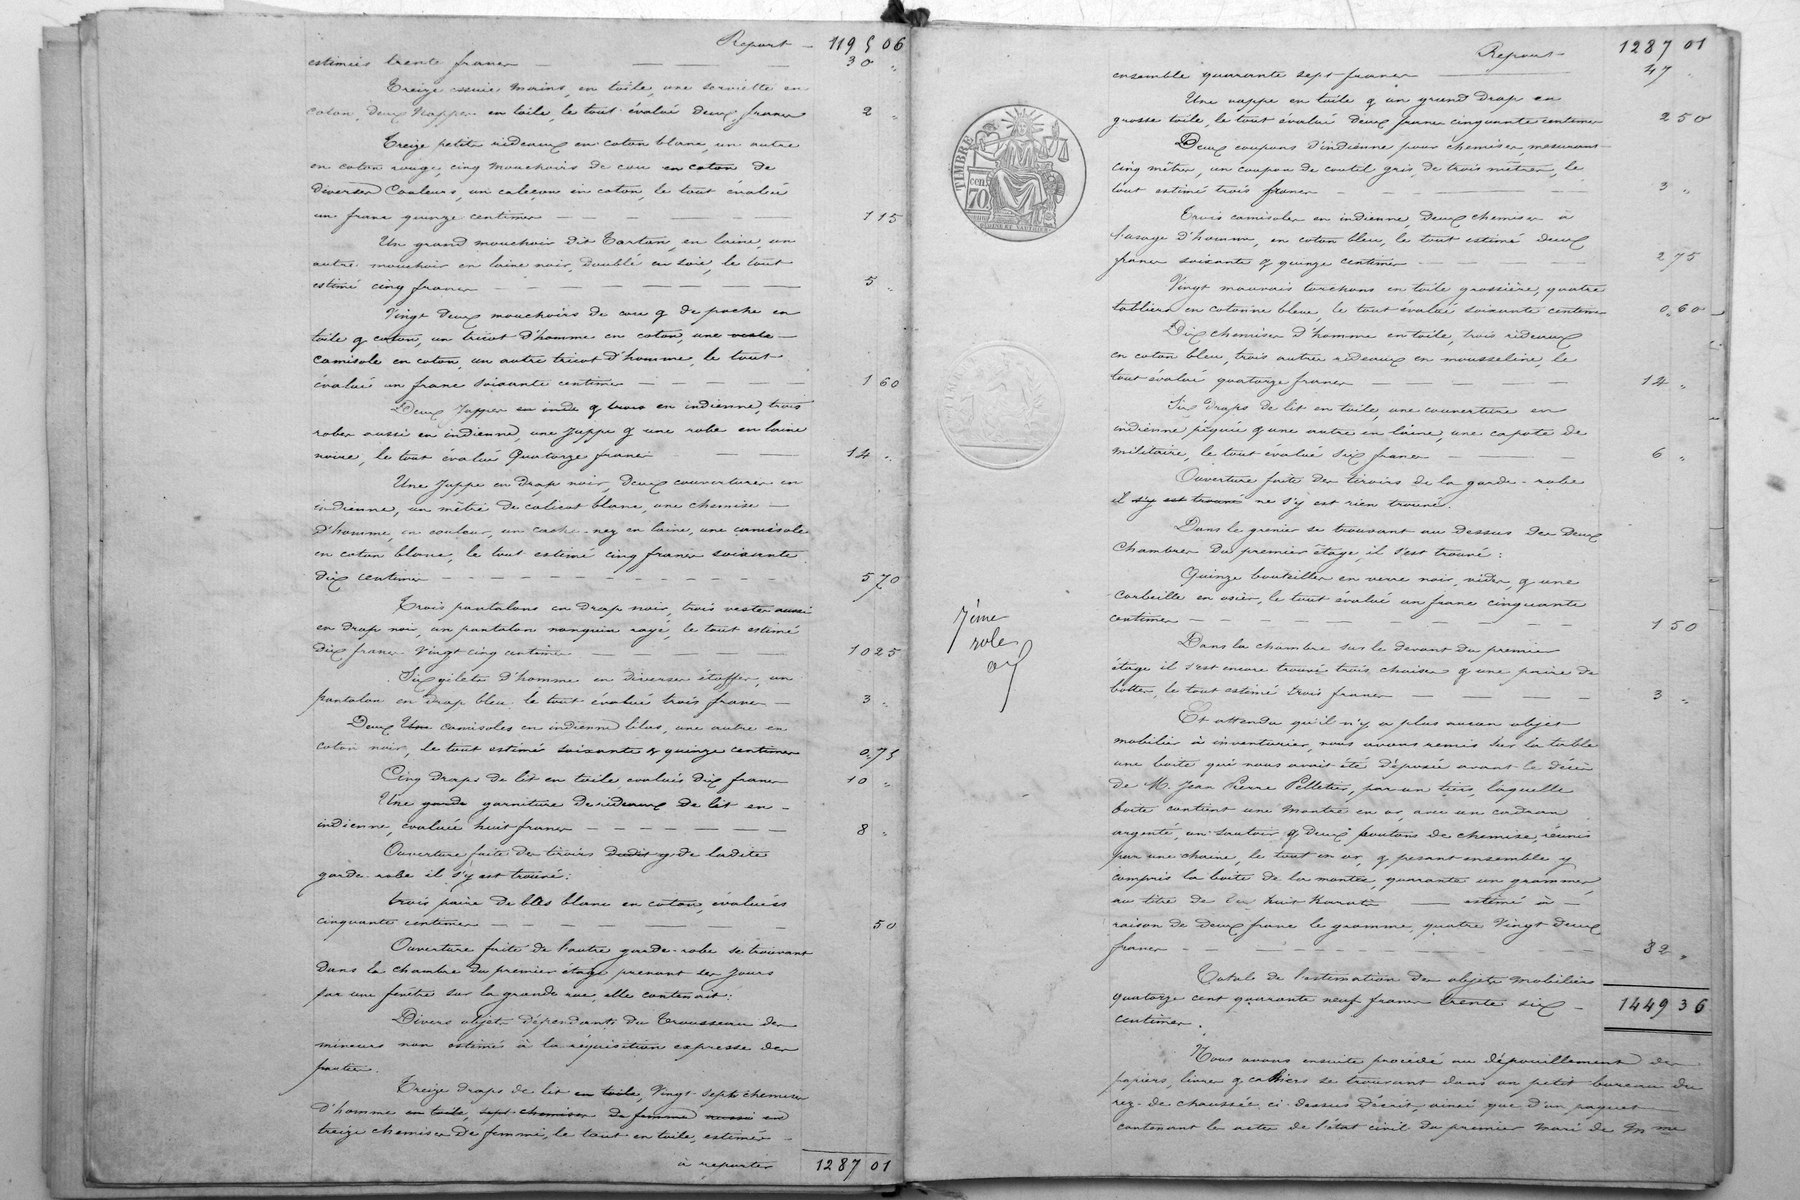 Report — 1195 06
estimés trente francs — — — — 30 "
Treize essuie mains, en toile, une serviette en
coton, deux nappes en toile, le tout évalué deux francs 2 "
Treize petits rideaux en coton blanc, un autre
en coton rouge, cinq mouchoirs de cou en coton de
diverses couleurs, un caleçon en coton, le tout évalué
un franc quinze centimes — — — — — 1 15
Un grand mouchoir dit Tartan, en laine, un
autre mouchoir en laine noir, doublé en soie, le tout
estimé cinq francs — — — — — — 5 "
Vingt deux mouchoirs de cou & de poche en
toile & coton, un tricot d'homme en coton, une veste —
camisole en coton, un autre tricot d'homme, le tout
évalué un franc soixante centimes — — — — 1 60
Deux juppes en inde & trois en indienne, trois
robes aussi en indienne, une juppe & une robe en laine
noire, le tout évalué quatorze francs — — 14 "
Une juppe en drap noir, deux couvertures en
indienne, un mètre de calicot blanc, une chemise —
d'homme, en couleur, un cache-nez en laine, une camisole
en coton blanc, le tout estimé cinq francs soixante
dix centimes — — — — — — — 5 70
Trois pantalons en drap noir, trois vestes aussi
en drap noir, un pantalon nanquin rayé, le tout estimé
dix francs vingt cinq centimes — — — — 10 25
Six gilets d'homme en diverses étoffes, un
pantalon en drap bleu, le tout évalué trois francs — 3 "
Deux Une camisoles en indienne lilas, une autre en
coton noir, le tout estimé soixante & quinze centimes 0,75
Cinq draps de lit en toile évalués dix francs 10 "
Une garde garniture de rideaux de lit en —
indienne, évaluée huit francs — — — — — 8 "
Ouverture faite des tiroirs dudit & de ladite
garde-robe il s'y est trouvé:
trois paire de bas blancs en coton, évaluées
cinquante centimes — — — — — — 50
Ouverture faite de l'autre garde-robe se trouvant
dans la chambre du premier étage, prenant ses jours
par une fenêtre sur la grande rue, elle contenait:
Divers objets dépendants du trousseau des
mineurs non estimés à la réquisition expresse des
parties.
Treize draps de lit en toile, vingt-sept chemises
d'homme en toile, sept chemises de femme aussi en
treize chemises de femme, le tout en toile, estimés —
à reporter 1287 01
Report — 1287 01
ensemble quarante sept francs — 47 "
Une nappe en toile & un grand drap en
grosse toile, le tout évalué deux francs cinquante centimes 2 50
Deux coupons d'indienne pour chemises, mesurant
cinq mètres, un coupon de coutil gris de trois mètres, le
tout estimé trois francs — — — — — 3 "
Trois camisoles en indienne, deux chemises à
l'usage d'homme, en coton bleu, le tout estimé deux
francs soixante & quinze centimes — — — — 2 75
Vingt mauvais torchons en toile grossière, quatre
tabliers en cotonne bleue, le tout évalué soixante centimes 0,60
Dix chemises d'homme en toile, trois rideaux
en coton bleu, trois autres rideaux en mousseline, le
tout évalué quatorze francs — — — — — 14 "
Six draps de lit en toile, une couverture en
indienne piquée & une autre en laine, une capote de
militaire, le tout évalué six francs — — — 6 "
Ouverture faite des tiroirs de la garde-robe
il s'y est trouvé ne s'y est rien trouvé.
Dans le grenier se trouvant au dessus des deux
chambres du premier étage, il s'est trouvé:
Quinze bouteilles en verre noir, vides, & une
corbeille en osier, le tout évalué un franc cinquante
centimes — — — — — — — — 1 50
Dans la chambre sur le devant du premier
étage il s'est encore trouvé trois chaises & une paire de
bottes, le tout estimé trois francs — — — — 3 "
Et attendu qu'il n'y a plus aucun objet
mobilier à inventorier, nous avons remis sur la table
une boite qui nous avait été déposée avant le décès
de M. Jean Pierre Pelletier, par un tiers, laquelle
boite contient une montre en or, avec un cadran
argenté, un sautoir & deux boutons de chemise, réunis
par une chaine, le tout en or, & pesant ensemble, y
compris la boite de la montre, quarante un grammes,
au titre de dix huit karats — estimé à —
raison de deux francs le gramme, quatre vingt deux
francs — — — — — 82 "
Total de l'estimation des objets mobiliers
quatorze cent quarante neuf francs trente six — 1449 36
centimes.
Nous avons ensuite procédé au dépouillement des
papiers, livres & cahiers se trouvant dans un petit bureau du
rez-de chaussée, ci-dessus décrit, ainsi que d'un paquet —
contenant les actes de l'état civil du premier mari de Mme
TIMBRE
cen.
70
7ème
role